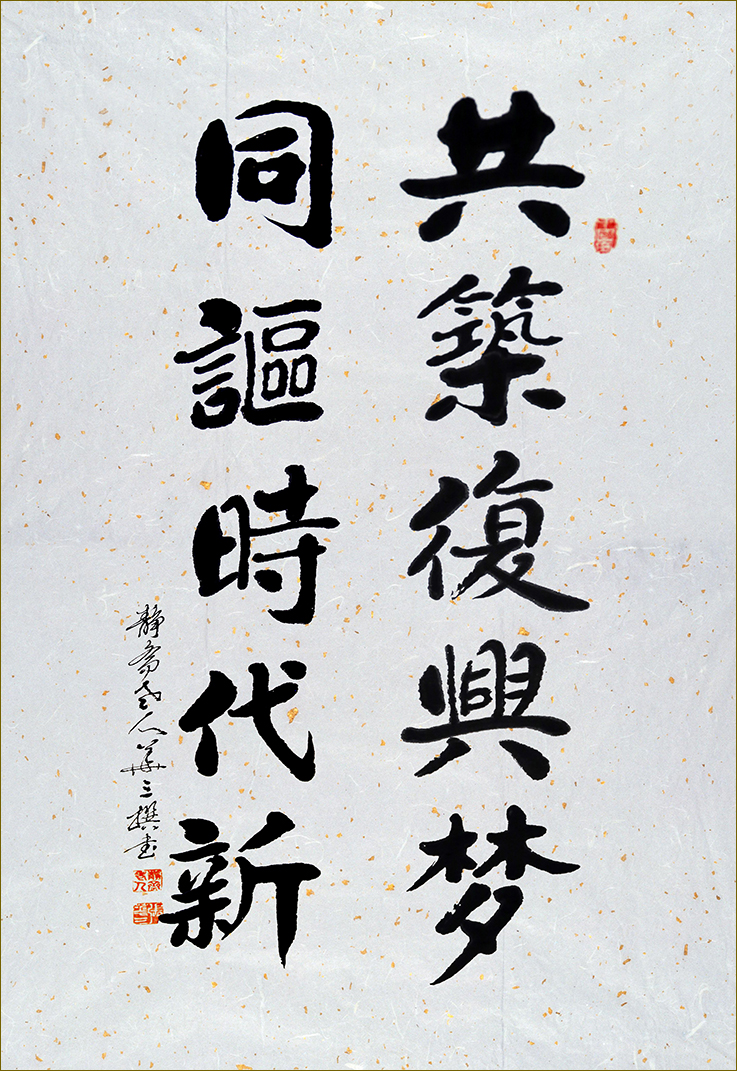 共築復興梦
同謳時代新
静斋老人華三撰书